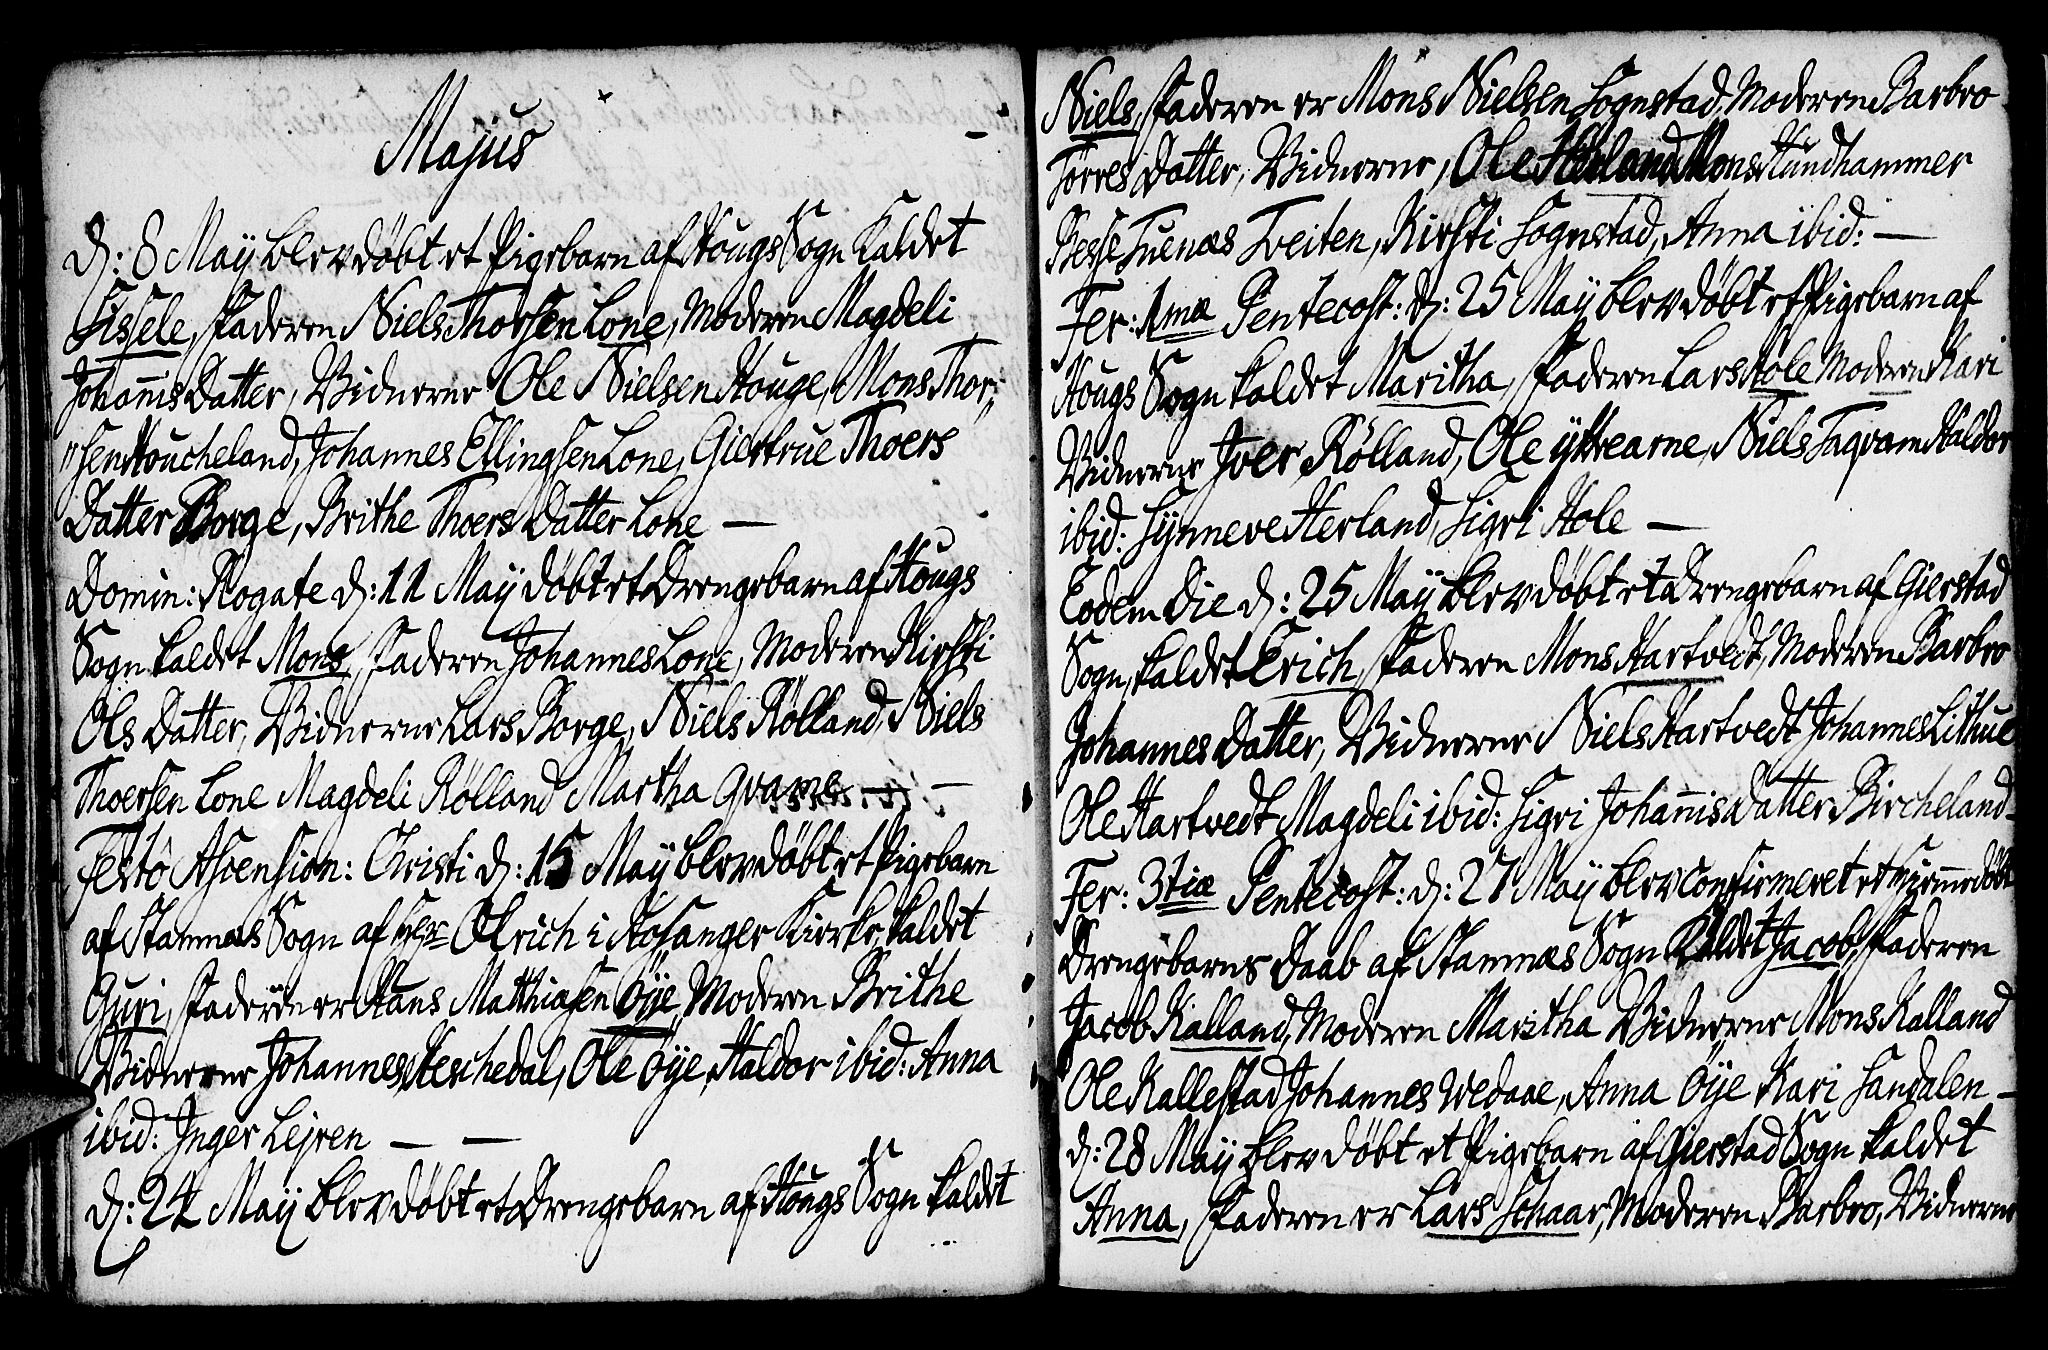 Majus
d: 8 Maÿ blev døbt et Pigebarn af Hougs Sogn Kaldet
Sissele, Faderen Niels Thorsen Lone, Moderen Magdeli
Johañis Datter, Vidnerne Ole Nielsen Houge, Mons Thor-
sen Houcheland, Johannes Ellingsen Lone, Giertrue Thoers
Datter Borge, Brithe Thoers Datter Lone —
Domin: Rogate d: 11 Maÿ døbt et Drengebarn af Hougs
Sogn kaldet Mons, Faderen Johannes Lone, Moderen Kirsti
Ols Datter, Vidnerne Lars Borge, Niels Rølland, Niels
Thoersen Lone Magdeli Rølland Martha Qvame — —
Festo Ascension: Christi d: 15 Maÿ blev døbt et Pigebarn
af Stamnæs Sogn af Hr Olrich i Hosanger Kierke, kaldet
Guri, Faderen er Hans Matthiasen Øÿe, Moderen Brithe
Vidnerne Johannes Heschedal, Ole Øÿe, Haldor ibid: Anna
ibid: Inger Lejren — —
d: 24 Maÿ blev døbt et Drengebarn af Hougs Sogn kaldet
Niels, Faderen er Mons Nielsen Sognstad, Moderen Barbro
Tørres Datter, Vidnerne, Ole Herland, Mons Hundhammer
Tuenæs Tveiten, Kirsti Sognstad, Anna ibid: —
Fer: 1mæ Pentecost: d: 25 Maÿ blev døbt et Pigebarn af
Hougs Sogn kaldet Maritha, Faderen Lars Hole Moderen Kari
Vidnerne Iver Rølland, Ole ÿttrearne, Niels Taqvam Haldor
ibid: Sÿnneve Herland, Sigri Hole —
Eodem Die d: 25 Maÿ blev døbt et Drengebarn af Gierstad
Sogn, kaldet Erich, Faderen Mons Hartvedt, Moderen Barbro
Johannes Datter, Vidnerne Niels Hartvedt Johannes Lithue
Ole Hartvedt Magdeli ibid: Sigri Johañis Datter Bircheland-
Fer: 3tiæ Pentecost: d: 27 Maÿ blev confirmeret et hiemmedøbt
Drengebarns Daab af Stamnæs Sogn Kaldet Jacob, Faderen
Jacob Kalland, Moderen Maritha Vidnerne Mons Kalland
Ole Kallestad Johannes Wedaae, Anna Øÿe Kari Sandalen —
d: 28 Maÿ blev døbt et Pigebarn af Gierstad Sogn kaldet
Anna, Faderen er Lars Schaar, Moderen Barbro, Vidnerne